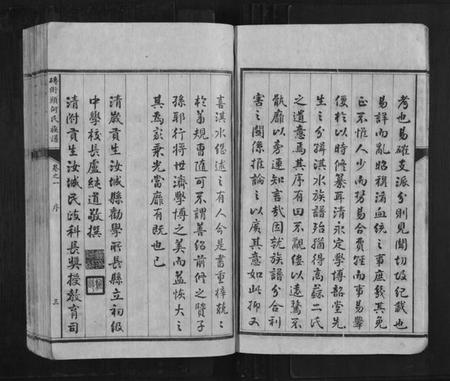 考也易確支派分則見聞切故紀載也
易詳而亂昭穆淆血統之事庶幾其免
正不惟人少而勞易合費輕而事易舉
便於以時修纂耳清永定學博韶堂先
生之分撰淇水族譜殆猶得高蘇二氏
之遺意焉其序有田不觀修以遠鶩不
骫靡以旁連知言哉因就族譜分合利
害之關係推論之以廣其意如此抑又
喜淇水修述之有人今是書重槔兢兢
於前規曹隨可不謂善紹前修之賢子
孫耶行將世濟學博之美而益恢大之
其為家乘光當靡有既也已
清歲貢生汝城縣勸學所長縣立初級
中學校長盧紱道敬撰
清附貢生汝城民政科長獎授教育司
磚街頭何氏族譜
卷之一
序
三